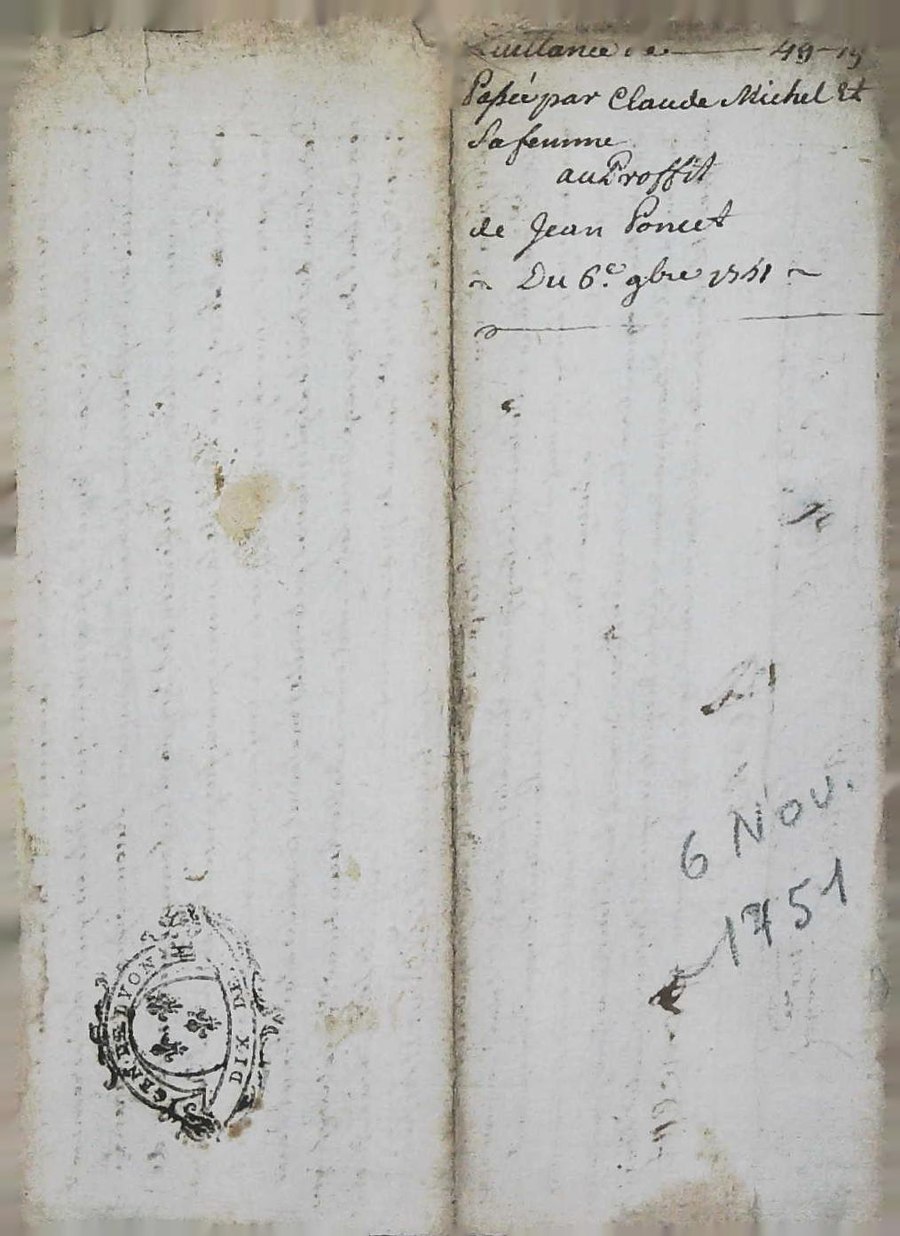 Quittance de 49-19
Passée par Claude Michel Et
Sa femme
au Proffit
de Jean Poncet
~ Du 6e. 9bre 1751 ~
6 Nov.
1751
GEN. DE LYON
DIX DE